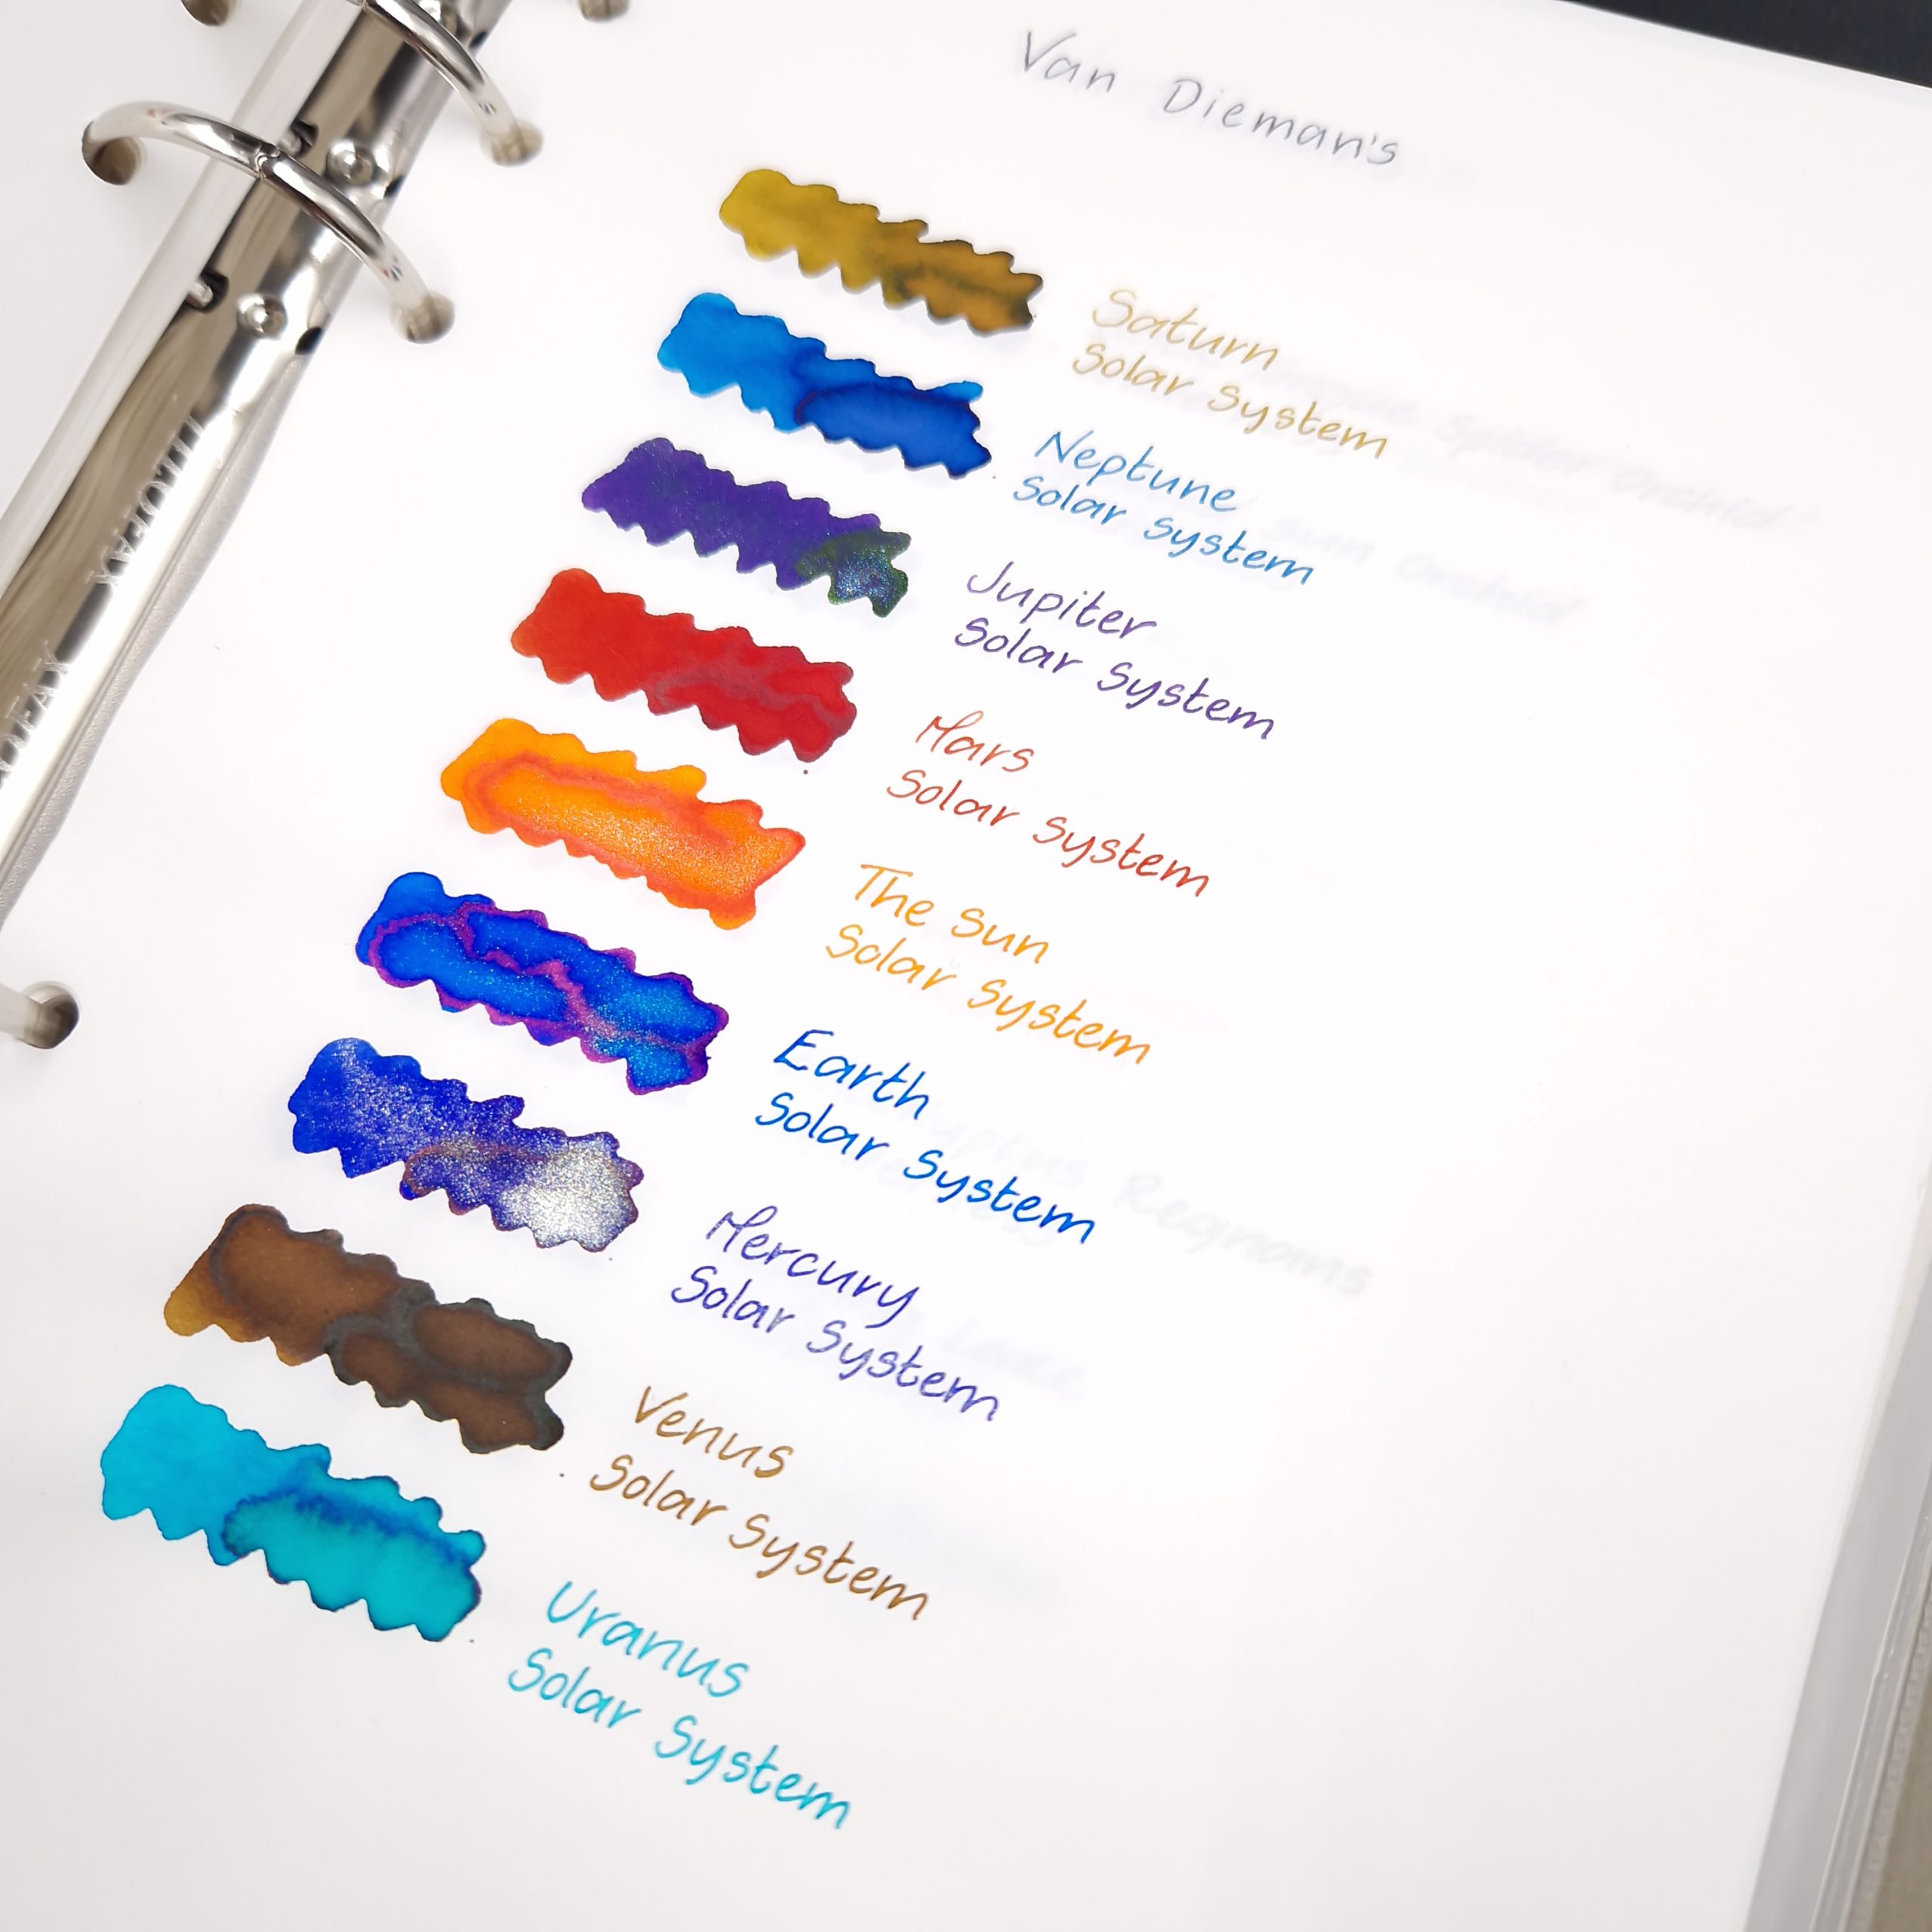 Van Dieman's
Saturn
Solar System
Neptune
Solar System
Jupiter
Solar System
Mars
Solar System
The Sun
Solar System
Earth
Solar System
Mercury
Solar System
Venus
Solar System
Uranus
Solar System
Spider Orchid
Sun Orchid
Regnans